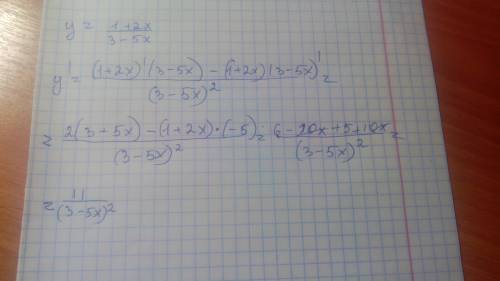 y = (1+2x)/(3-5x)
y' = ((1+2x)'(3-5x) - (1+2x)(3-5x)')/(3-5x)² =
= (2(3+5x) - (1+2x)·(-5))/(3-5x)² = (6-20x+5+10x)/(3-5x)² =
= 11/(3-5x)²